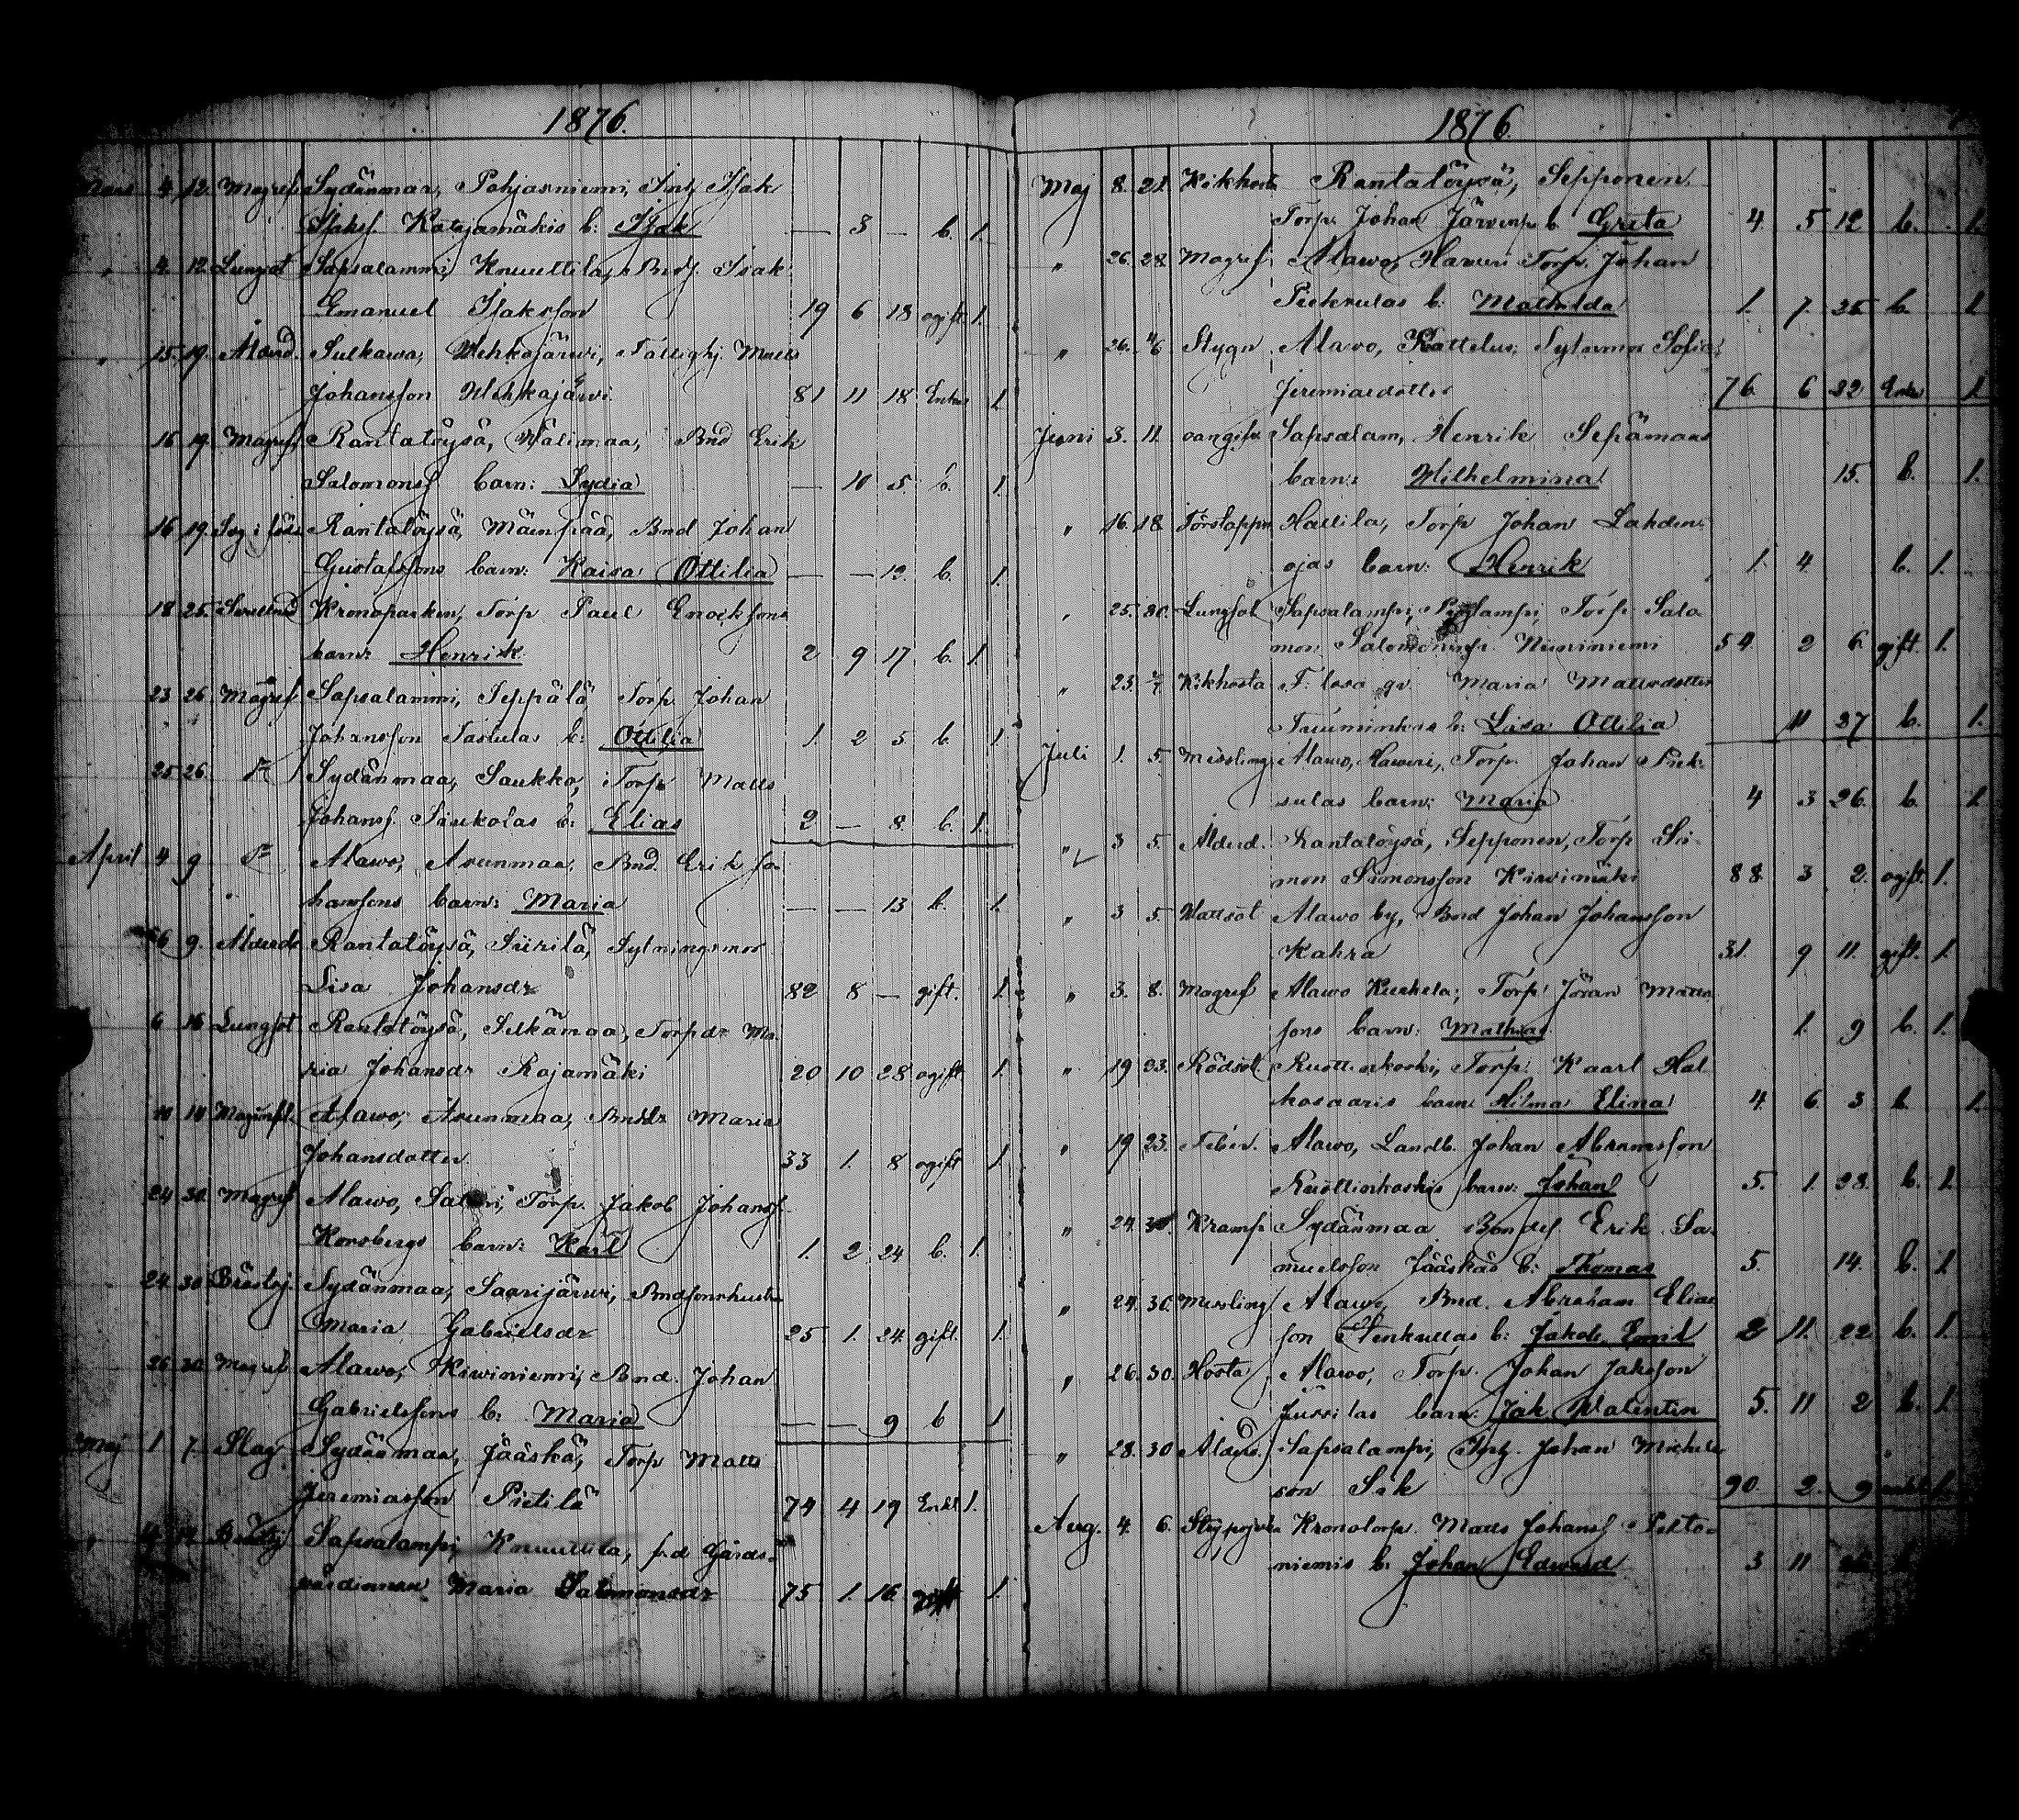 1876.
Mars 4. 12. Magref Sydänmaa, Pohjasniemi, Inh. Isak
Isaksf. Katajamäkis b: Isak — 3 — b. 1.
" 4. 12. Lungsot Sapsalammi, Knuuttila, Bndf Isak
Emanuel Isaksson 19 6 18 ogift 1.
" 15. 19. Ålderd. Sulkawa, Wehkajärwi, Fattighj. Matts
Johansson Wehkajärwi 81 11 18 Enkm 1.
16 19. Magref Rantatöysä, Wälimaa, Bnd Erik
Salomonsf barn: Lydia — 10 5. b. 1.
16 19. Rantatöysä, Mäenpää, Bnd Johan
Gustafssons barn: Kaisa Ottilia — — 13. b. 1.
18 25. Kronoparken, Torp. Paul Enochssons
barn: Henrik 2 9 17 b. 1.
23 26. Magref Sapsalammi, Seppälä, Torp. Johan
Johansson b: Ottilia 1. 2 5 b. 1.
25 26. Dº Sydänmaa, Saukko, Torp Matts
Johansf. Saukolas b: Elias 2 — 8 b. 1.
April 4 9 Dº Alawo, Asunmaa, Bnd. Erik Jo-
hanssons barn: Maria — — 13 b. 1.
6 9. Ålderd. Rantatöysä, Siirilä, Sytningsmor
Lisa Johansdr 82 8 — gift. 1.
6 16 Lungsot Rantatöysä, Selkämaa, Torpdr Ma-
ria Johansdr Rajamäki 20 10 28 ogift 1.
Alawo, Asunmaa, Bnddr Maria
Johansdotter 33 1. 8 ogift 1.
24 30. Magref Alawo, Torp. Jakob Johansf
Korsbergs barn: Karl 1. 2 24 b. 1.
24 30 Bröstsj. Sydänmaa, Saarijärwi, Bndsonshustru
Maria Gabrielsdr 25 1. 24 gift. 1.
26 30. Magref Alawo, Kiwiniemi, Bnd. Johan
Gabrielssons b. Maria — — 9 b 1
Maj 1 7. Slag Sydänmaa, Jääskä, Torp Matts
Jeremiasson Pietilä 74 4 19 Enkl 1.
" Bröstsj Sapsalampi, Knuuttila, f.d. Gårds-
värdinnan Maria Salomonsdr 75 1. 16. gift 1.
1876.
Maj 8. 21. Kikhosta Rantatöysä, Sepponen,
Torp. Johan Järwenp. b. Greta 4. 5 12 b. 1.
" 26. 28. Magref Alawo, Haweri Torp. Johan
Pieksulas b. Mathilda 1. 7. 25 b. 1
" 26. 4/6 Stygn Alawo, Rattelus, Sytnmor Sofia
Jeremiaedotter 76. 6 22 Enka 1.
Juni 3. 11. oangifv. Sapsalam, Henrik Sepämaas
barn: Wilhelmina 15. b. 1.
" 16. 18. Hattila, Torp Johan Lahden-
ojas barn: Henrik 1. 4. b. 1.
" 25. 30. Lungsot Sapsalampi, Torp Salo
mon Salomonsf. Niininiemi 54 2 6. gift. 1.
" 23. 2/7 Kikhosta F. lösa qv. Maria Mattsdotter
b: Lisa Ottilia 11 27 b. 1.
Juli 1. 5. Messling Alawo, Haweri, Torp. Johan Piek-
sulas barn: Maria 4 3 26. b. 1
" 3 5. Ålderd. Rantatöysä, Sepponen, Torp Si-
mon Simonsson Kiwimäki 88. 3 2. ogift. 1.
" 3 5. Wattsot Alawo by, Bnd Johan Johansson
Kahra 31. 9 11. gift. 1.
" 3. 8. Magref Alawo Kuuhela, Torp. Jöran Matts
sons barn: Mathias 1. 9 b. 1.
" 19 23. Rödsot Ruottinkoski, Torp. Kaarl Hal
kosaaris barn Hilma Elina 4. 6. 3 b. 1.
" 19 23. Feber. Alawo, Landb. Johan Abramsson
Ruottinkoskis barn: Johan 5. 1. 28. b. 1.
" 24. 30. Kramp Sydänmaa Bondes. Erik Sa-
muelsson Jääskäs b: Thomas 5. 14. b. 1.
" 24. 30. Messling Alawo, Bnd. Abraham Elias
son b: Jakob Emil 2 11. 22 b. 1.
" 26. 30. Hosta Alawo, Torp. Johan Jakssson
Jussilas barn: Jak. Walentin 5. 11 2 b. 1.
" 28. 30 Ålderd. Sapsalampi, Inh. Johan Michels
son Sik 90. 2. 9 1.
Aug. 4. 6. Kronotorp. Matts Johansf Pelto-
niemis b. Johan Edward 3 11